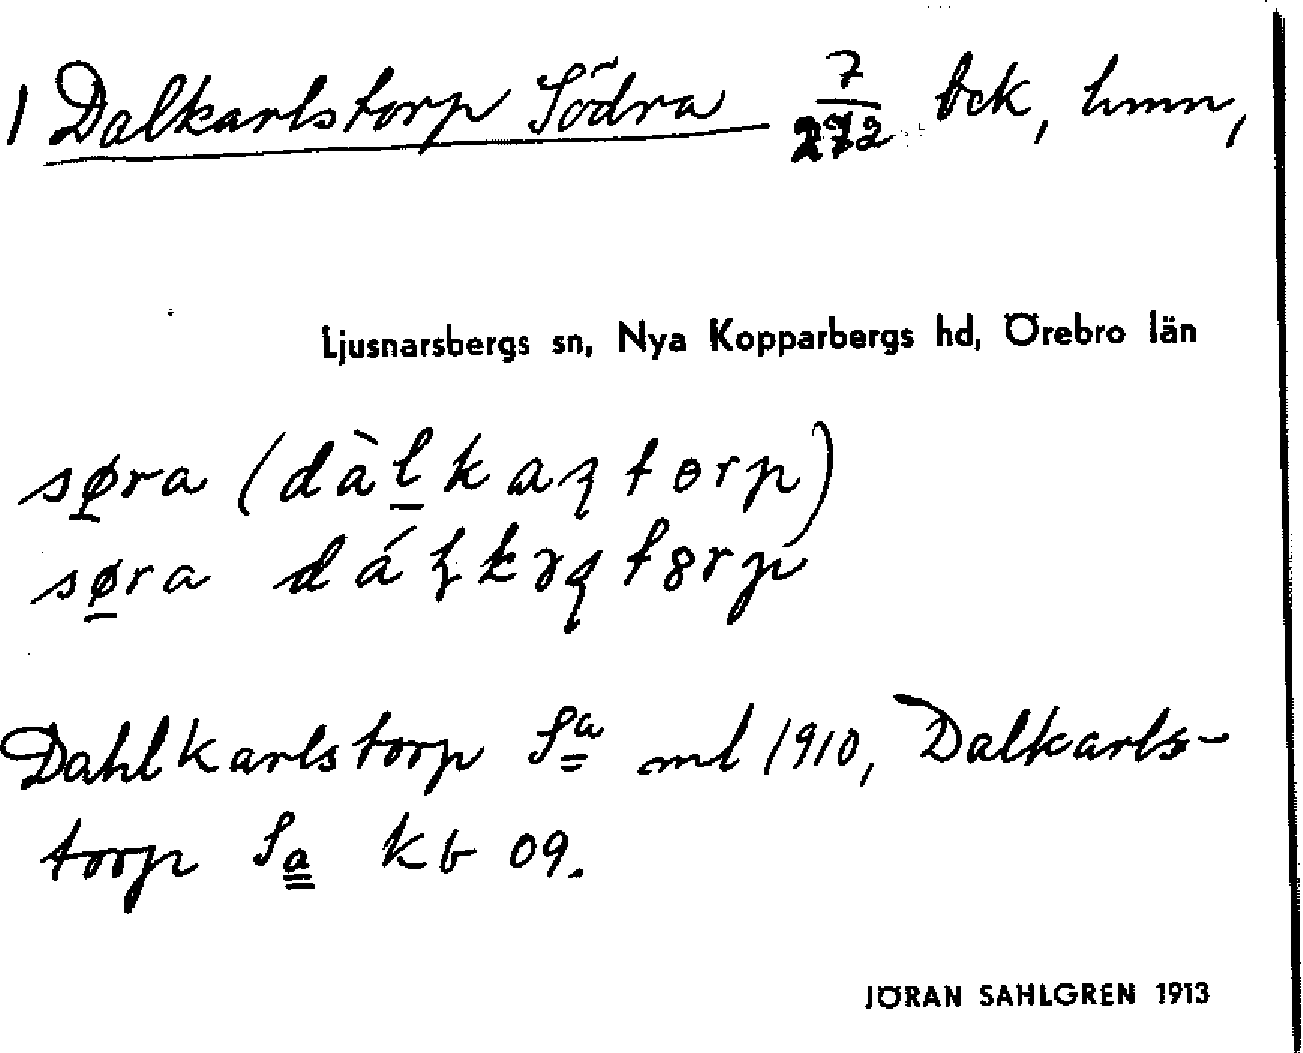 1 Dalkarlstorp Södra 7/272 bck, hmn,
Ljusnarsbergs sn, Nya Kopparbergs hd, Örebro län
søra (dàlkaꞃtorp)
søra
Dahlkarlstorp Sa ml 1910, Dalkarls-
torp Sa kb 09.
JÖRAN SAHLGREN 1913